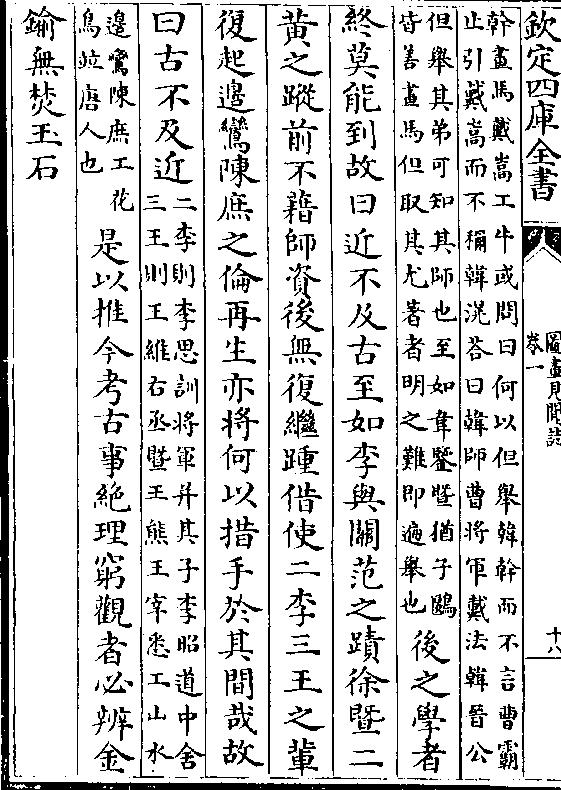 欽定四庫全書
圖畫見聞誌
卷一
十八
幹畫馬戴嵩工牛或問曰何以但舉韓幹而不言曹霸
止引戴嵩而不稱韓滉荅曰韓師曹將軍戴法韓晉公
但舉其弟可知其師也至如韋鑒暨猶子鷗
皆善畫馬但取其尤著者明之難即遍舉也
後之學者
終莫能到故曰近不及古至如李與關范之蹟徐暨二
黄之蹤前不藉師資後無復繼踵借使二李三王之輩
復起邉鸞陳庶之倫再生亦將何以措手於其間哉故
曰古不及近
二李則李思訓將軍并其子李昭道中舍
三王則王維右丞暨王熊王宰悉工山水
邉鸞陳庶工花
鳥並唐人也
是以推今考古事絶理窮觀者必辨金
鍮無焚玉石